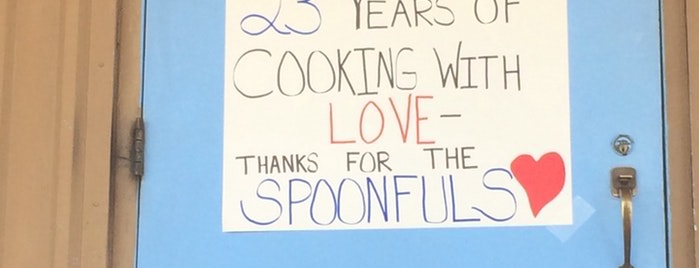 23 YEARS OF
COOKING WITH
LOVE-
THANKS FOR THE
SPOONFULS